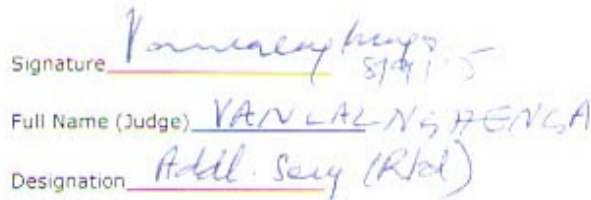 Signature
Full Name (Judge) VANLALNGHENGA
Designation Addl. Secy (Rtd)